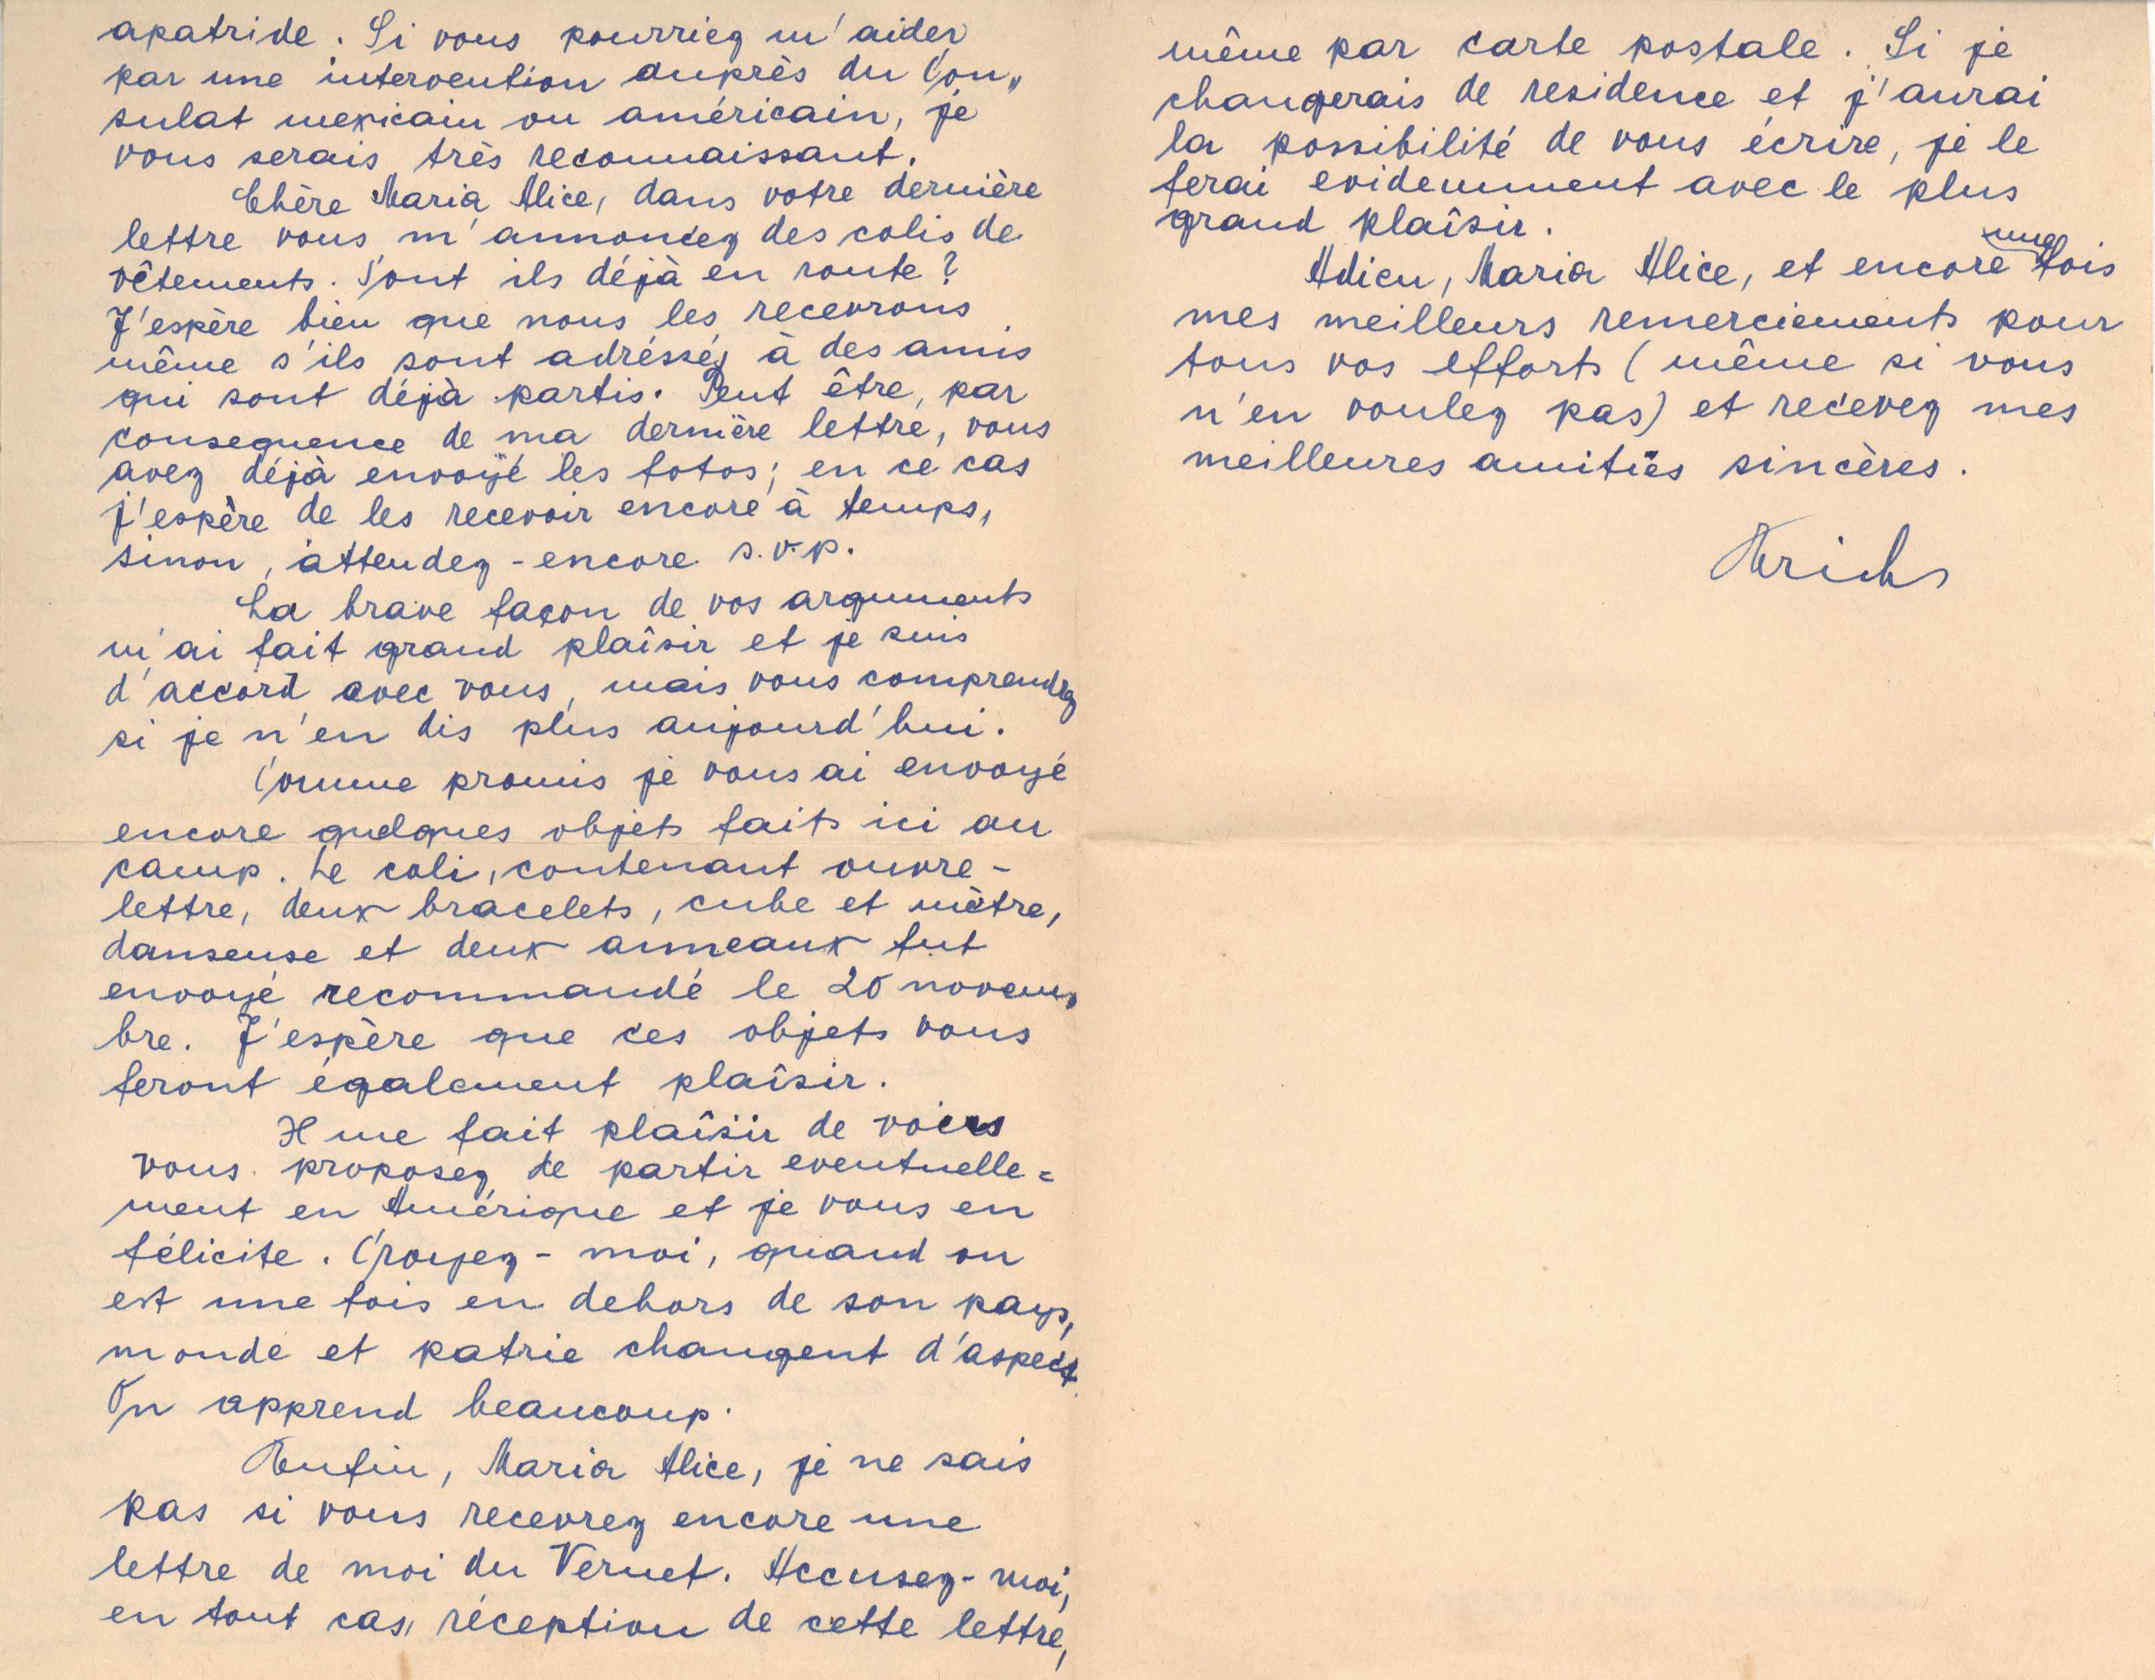 apatride. Si vous pourriez m'aider
par une intervention auprès du Con„
sulat mexicain ou américain, je
vous serais très reconnaissant.
Chère Maria Alice, dans votre dernière
lettre vous m'annoncez des colis de
vêtements. Sont ils déjà en route?
J'espère bien que nous les recevrons
même s'ils sont adréssés à des amis
qui sont déjà partis. Peut être, par
consequence de ma dernière lettre, vous
avez déjà envoyé les fotos; en ce cas
j'espère de les recevoir encore à temps,
sinon, attendez-encore s.v.p.
La brave façon de vos arguments
m'ai fait grand plaîsir et je suis
d'accord avec vous, mais vous comprendrez
si je n'en dis plus aujourd'hui.
Comme promis je vous ai envoyé
encore quelques objets faits ici au
camp. Le coli, contenant ouvre-
lettre, deux bracelets, cube et mètre,
danseuse et deux anneaux fut
envoyé recommandé le 20 novem„
bre. J'espère que ces objets vous
feront également plaîsir.
Il me fait plaîsir de voir
vous proposez de partir eventuelle=
ment en Amérique et je vous en
félicite. Croyez-moi, quand on
est une fois en dehors de son pays,
monde et patrie changent d'aspect.
On apprend beaucoup.
Enfin, Maria Alice, je ne sais
pas si vous recevrez encore une
lettre de moi du Vernet. Accusez-moi,
en tout cas, réception de cette lettre,
même par carte postale. Si je
changerais de residence et j'aurai
la possibilité de vous écrire, je le
ferai evidemment avec le plus
grand plaîsir.
Adieu, Maria Alice, et encore une fois
mes meilleurs remerciements pour
tous vos efforts (même si vous
n'en voulez pas) et recevez mes
meilleures amitiés sincères.
Erich